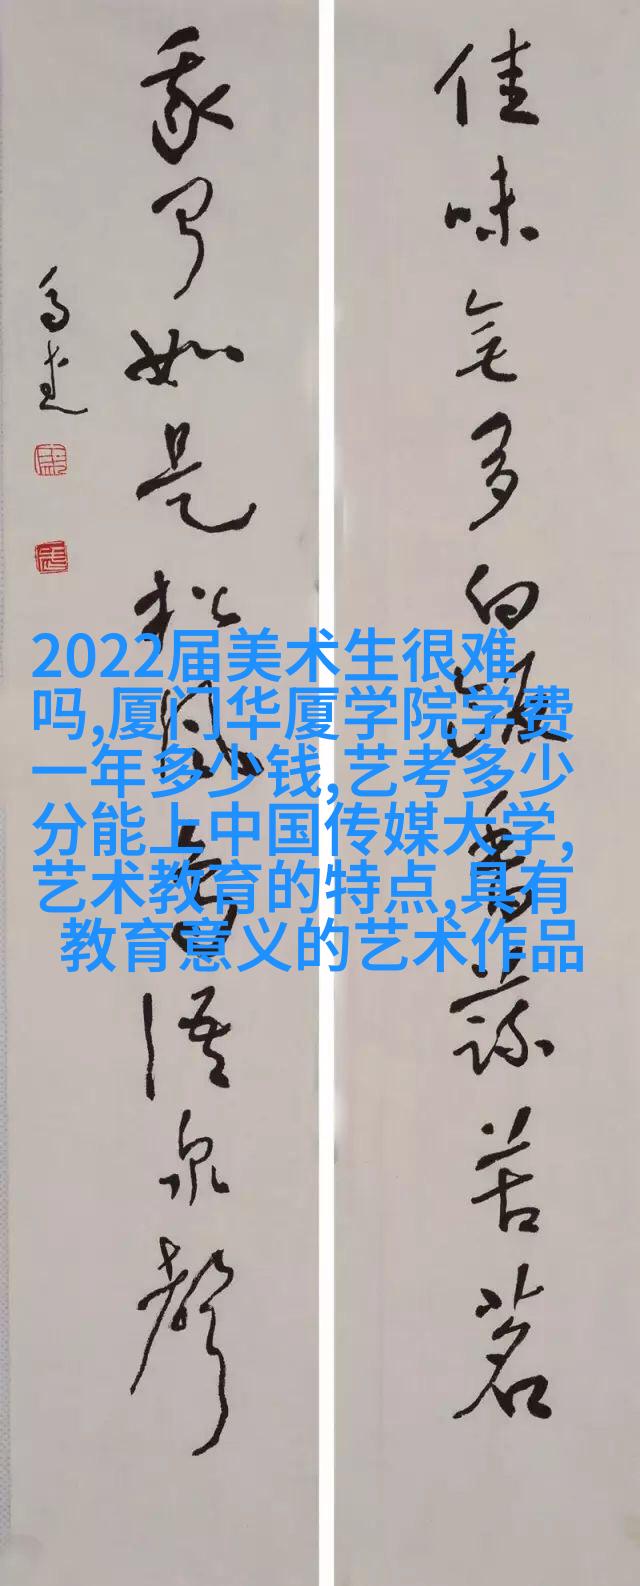 佳味無多白飯香蔬苦茗
我聞如是松風鳥語泉聲
2022届美术生很难
吗,厦门华厦学院学费
一年多少钱,艺考多少
分能上中国传媒大学,
艺术教育的特点,具有
教育意义的艺术作品